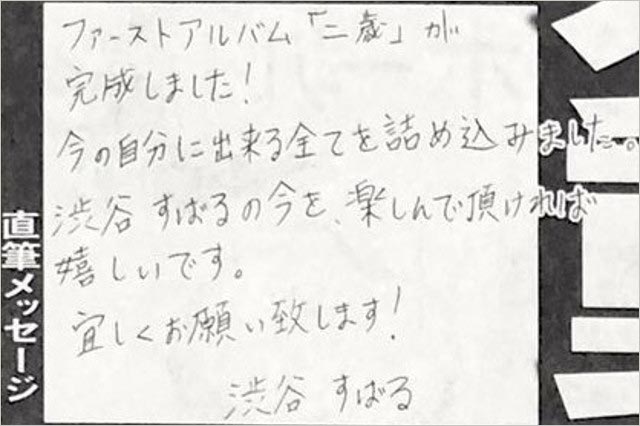 ファーストアルバム「二歳」が
完成しました!
今の自分に出来る全てを詰め込みました。
渋谷すばるの今を、楽しんで頂ければ
嬉しいです。
宜しくお願い致します!
渋谷 すばる
直筆メッセージ